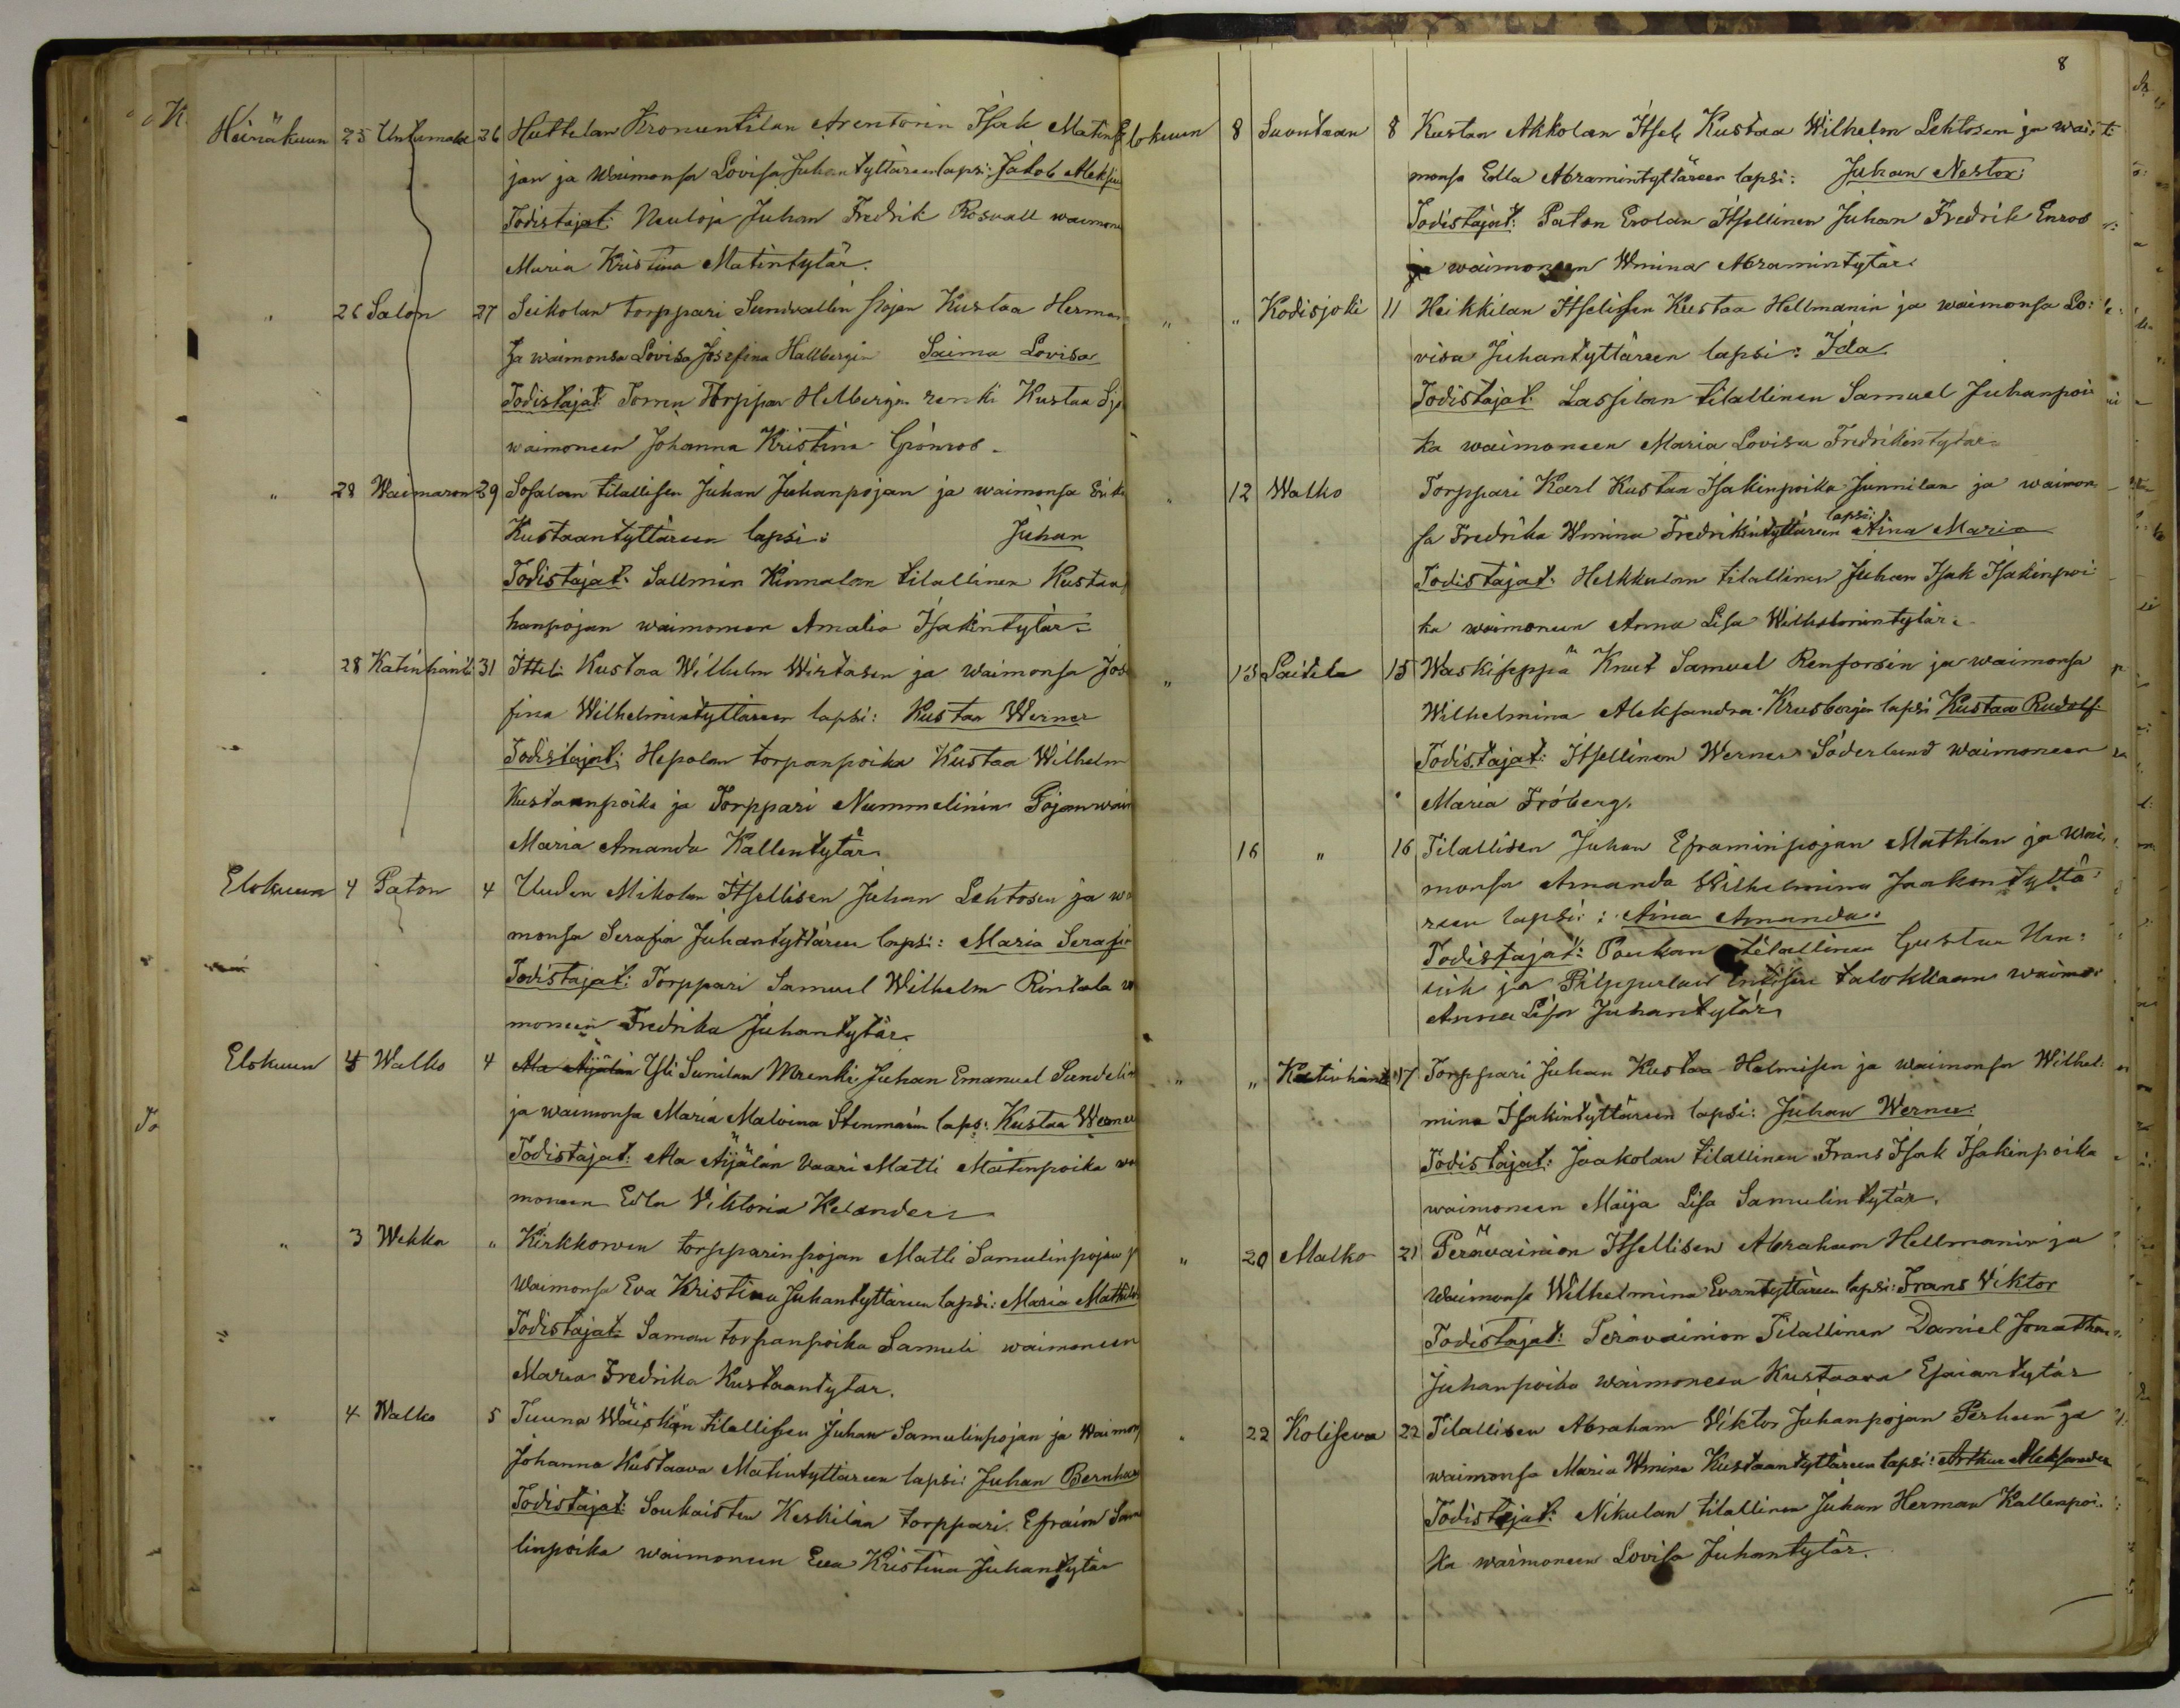 Heinäkuun 25 Untamala 26 Huttelan Kronuntilan Arentorin Isak Matinpo
jan ja Waimonsa Lovisa Juhantyttäreen lapsi: Jakob Aleksi
Todistajat: Neuloja Juhan Fredrik Rosvall waimone
Maria Kristina Matintytär.
" 26 Salon 27 Seikolan torppari Sundvallin pojan Kustaa Herman
Ja waimonsa Lovisa Josefina Hallbergin Saima Lovisa
Todistajat Torppan Hellbergin renki Kustaa
waimoneen Johanna Kristina Grönros.
" 28 Waimaron 29 Sofalan tilallisen Juhan Juhanpojan ja waimonsa Erika
Kustaantyttäreen lapsi: Juhan
Todistajat: Sallmin Kinnalan tilallinen Kustaa
hanpojan waimoneen Amalia Isakintytär.
" 28 Katinhänt: 31 Ittel: Kustaa Wilhelm Wirtasen ja waimonsa Jose
fina Wilhelmintyttäreen lapsi: Kustaa Werner
Todistajat: Hepolan torpanpoika Kustaa Wilhelm
Kustaanpoika ja Torppari Nummelinin Pojan waim
Maria Amanda Kallentytär
Elokuun 4 Paton 4 Uuden Mikolan Itsellisen Juhan Lehtosen ja wa
monsa Serafia Juhantyttäreen lapsi: Maria Serafi
Todistajat: Torppari Samuel Wilhelm Rintala w
moneen Fredrika Juhantytär.
Elokuun 4 Walko 4 Ala Äijälän Yli Sunilan Mrenki Juhan Emanuel Sundelin
ja waimonsa Maria Malvina Stenmanin laps: Kustaa Werner
Todistajat: Ala Äijälän vaari Matti Matinpoika wa
moneen Edla Viktoria Kelander
" 3 Wekka " Kirkkorven torpparinpojan Matti Samulinpojan j
Waimonsa Eva Kristina Juhantyttäreen lapsi: Maria Mathild
Todistajat: Saman torpanpoika Samuli waimoneen
Maria Fredrika Kustaantytar.
" 4 Walko 5 Tuuna Wäiskän tilallisen Juhan Samulinpojan ja Waimon
Johanna Kustaava Matintyttäreen lapsi: Juhan Bernhar
Todistajat: Soukaisten Keskilän torppari Efraim Sam
linpoika waimoneen Eva Kristina Juhantytär
8
lokuun 8 Suontaan 8 Kustan Akkolan Itsel: Kustaa Wilhelm Lehtosen ja wai
monsa Edla Abramintyttäreen lapsi: Juhan Nestor:
Todistajat: Paton Erolan Itsellinen Juhan Fredrik Enroos
ja waimoneen Wmina Abramintytär
" " Kodisjoki 11 Heikkilan Itselissen Kustaa Hellmanin ja waimonsa Lo:
visa Juhantyttäreen lapsi: Ida
Todistajat: Lassilan tilallinen Samuel Juhanpoi
ka waimoneen Maria Lovisa Fredrikintytar
" 12 Walko Torppari Karl Kustaa Isakinpoika Junnilan ja waimon
sa Fredrika Wmina Fredrikintyttäreen lapsi: Aina Maria
Todistajat: Heikkulan tilallinen Juhan Isak Isakinpoi
ka waimoneen Anna Lisa Wilhelmintytär.
" 13 Laitila 15 Waskiseppä Knut Samuel Renforsin ja waimonsa
Wilhelmina Aleksandra Krusbergin lapsi Kustaa Rudolf
Todistajat: Itsellinen Werner Söderlund waimoneen
Maria Fröberg.
16 " 16 Tilallisen Juhan Eframinpojan Mattilan ja Wai
monsa Amanda Wilhelmina Jaakontyttä
reen lapsi: Aina Amanda.
Todistajat: Poukan tilallinen Gustaa Hen:
rik ja Pilppulan Entisen talokkaan waimo
Anna Lisa Juhantytär
" " Katinhänt: 17 Torppari Juhan Kustaa Helmisen ja waimonsa Wilhel:
mina Isakintyttäreen lapsi: Juhan Werner
Todistajat: Jaakolan tilallinen Frans Isak Isakinpoika
waimoneen Maija Lisa Samulintytär.
" 20 Malko 21 Perävainion Itsellisen Abraham Hellmanin ja
Waimonsa Wilhelmina Evantyttäreen lapsi: Frans Viktor
Todistajat: Perävainion Tilallinen Daniel Jonathan
Juhanpoika waimoneen Kustaava Esaiantytär
" 22 Koliseva 22 Tilallisen Abraham Viktor Juhanpojan Perhun ja
waimonsa Maria Wmina Kustaantyttäreen lapsi: Arthur Aleksander
Todistajat: Nikulan tilallinen Juhan Herman Kallenpoi
ka waimoneen Lovisa Juhantytär.